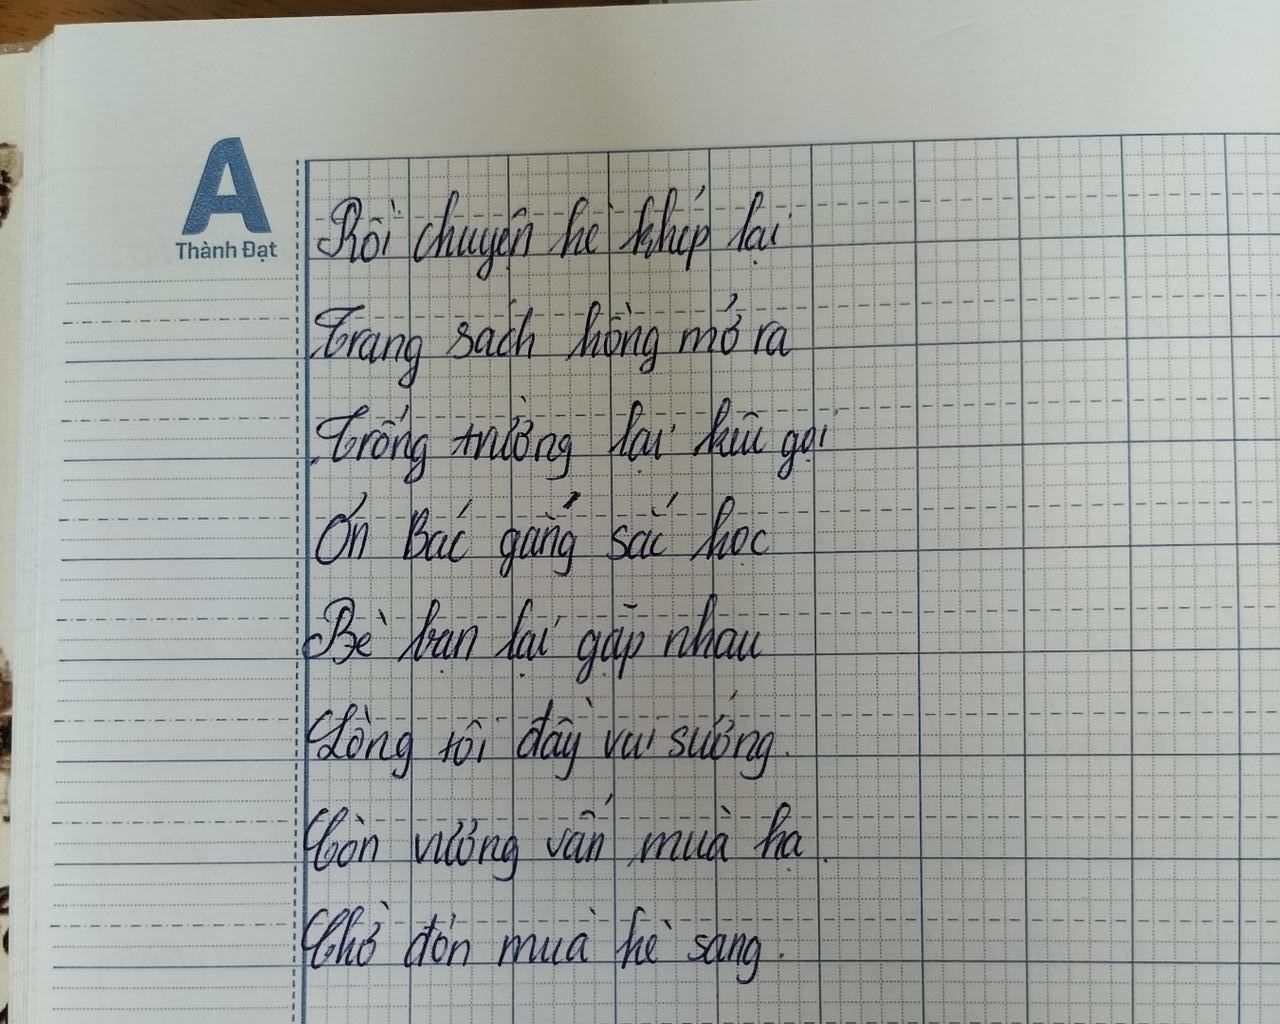 A
Thành Đạt
Rồi chuyện hè khép lại
Trang sách hồng mở ra
Trống trường lại kíu gọi
Ơn Bác gắng sắc học
Bè bạn lại gặp nhau
Lòng tôi đầy vui sướng.
Còn vương vấn mùa hạ.
Chờ đón mùa hè sang.